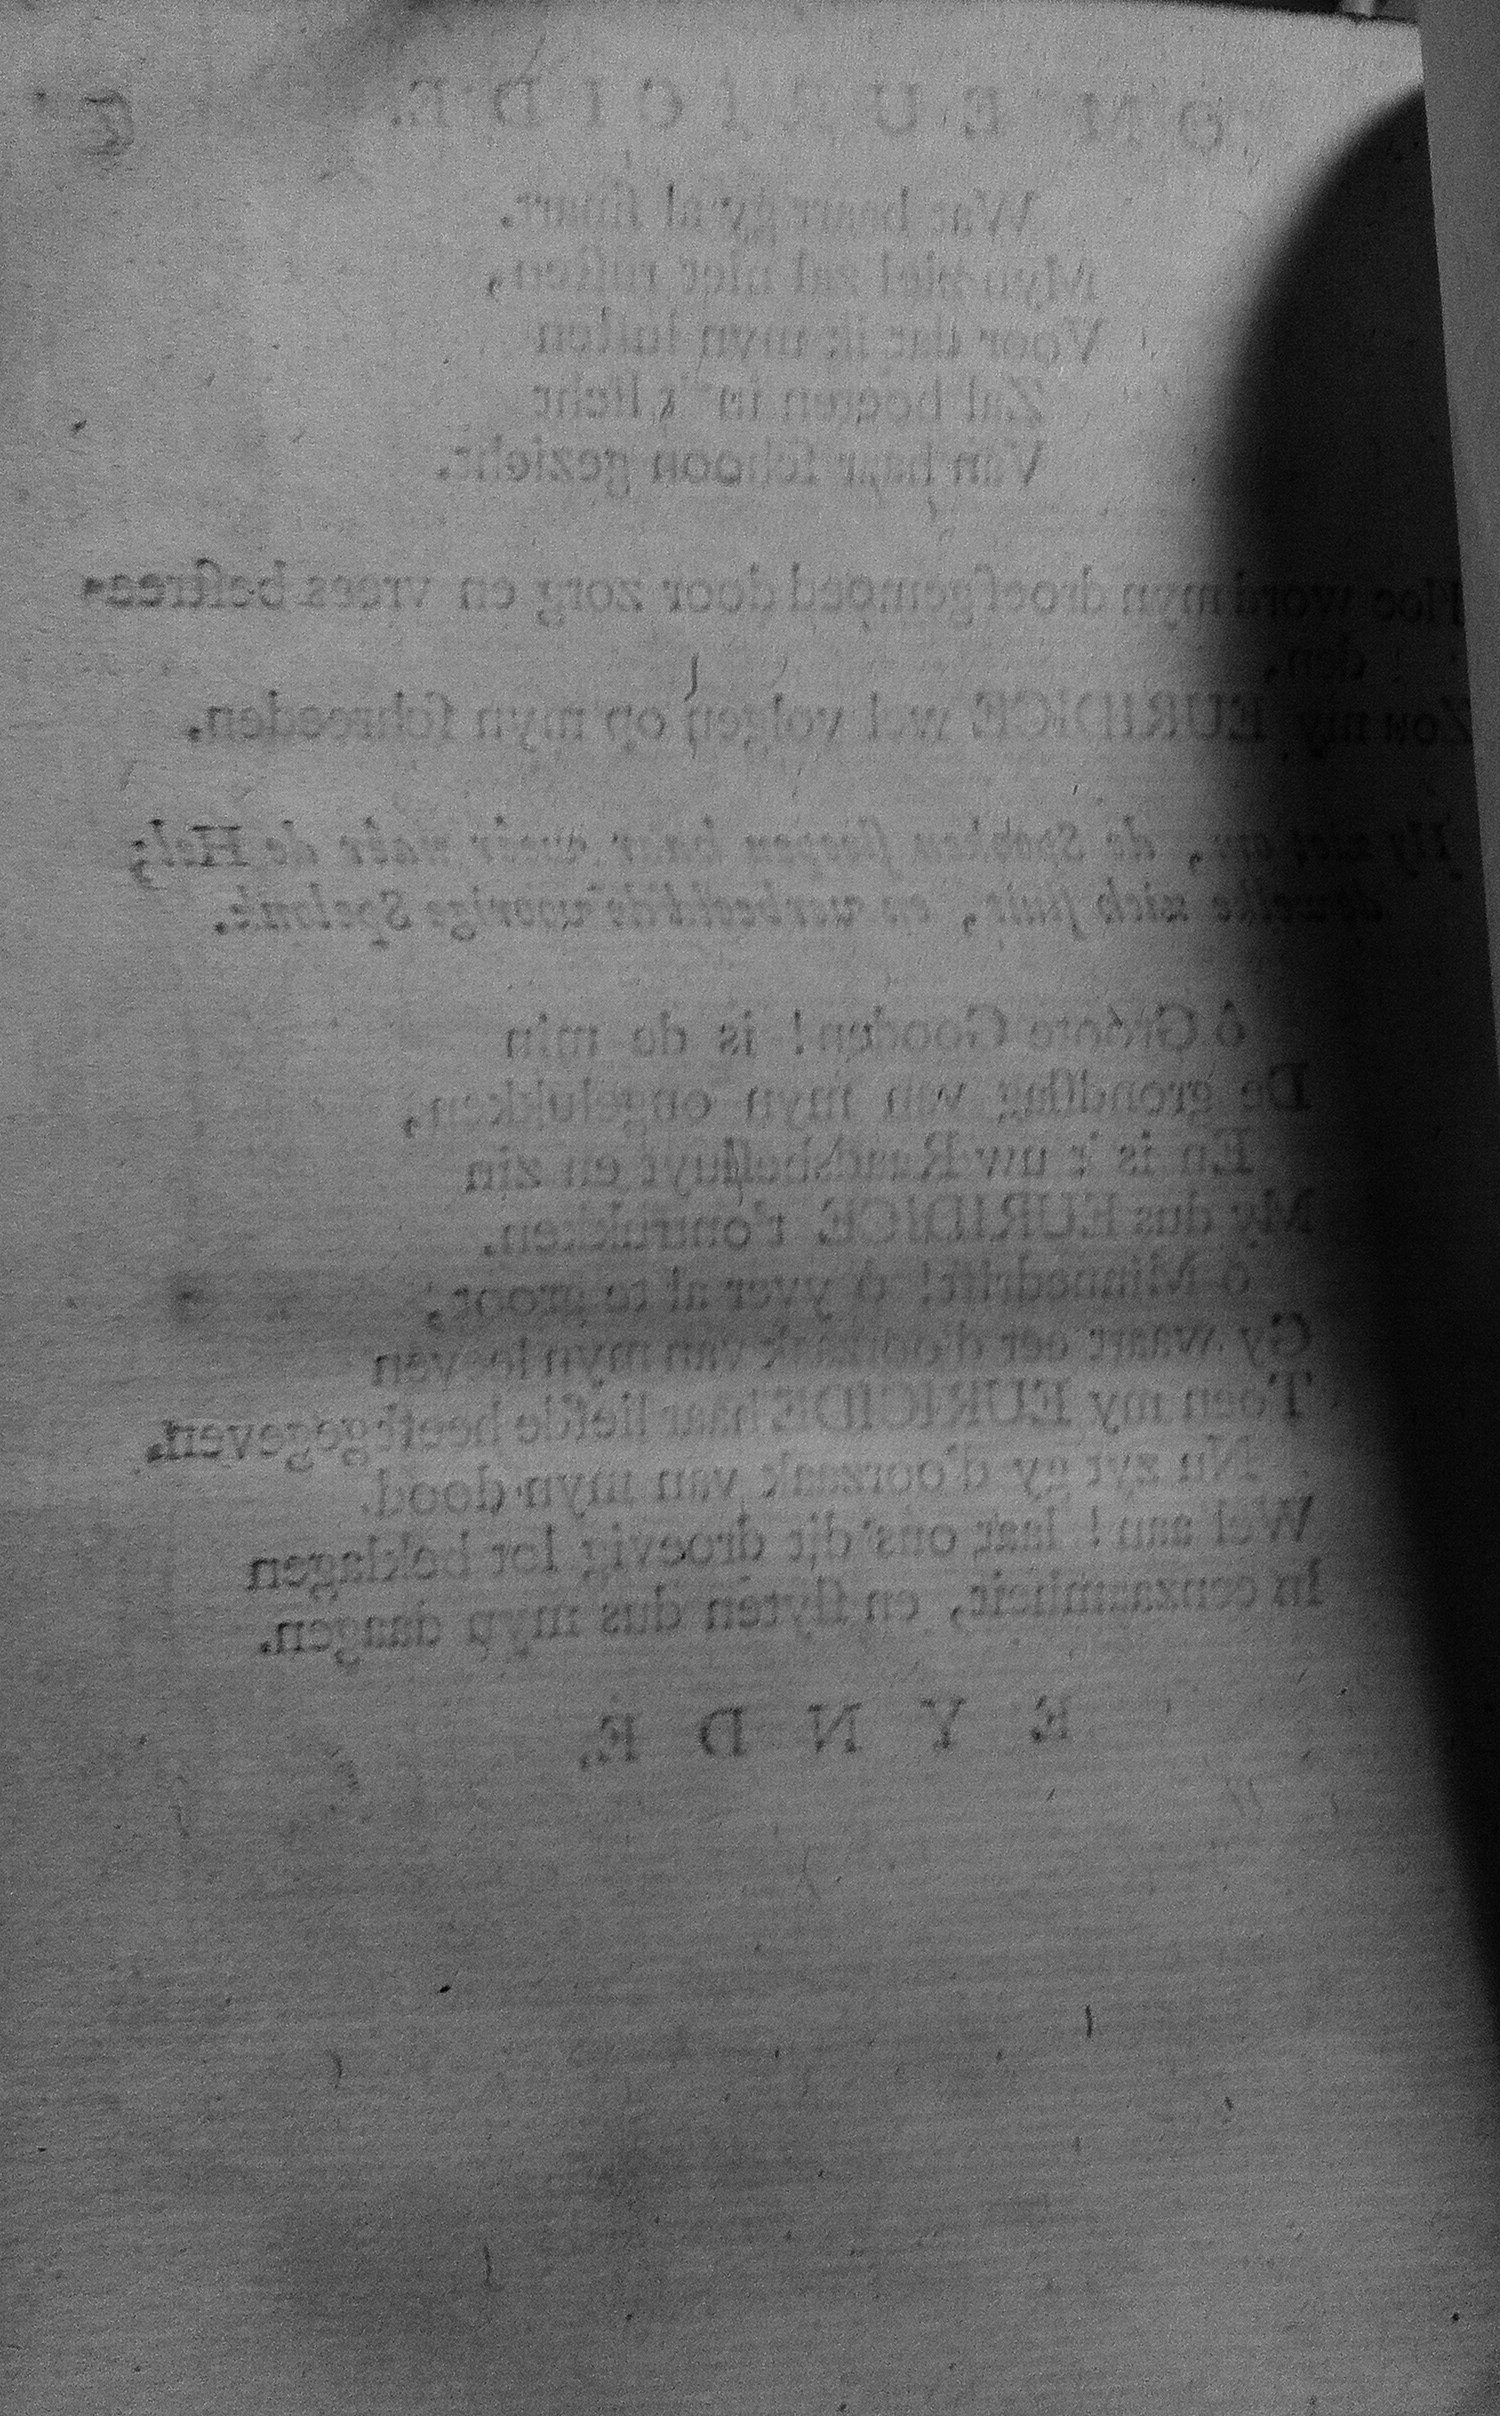 OM EURICIDE.
Wat baart gy al smart.
Myn ziel zal niet rusten,
Voor dat ik myn lusten
Zal boeten in 't licht
Van haar schoon gezicht.
Hoe word myn droef gemoed door zorg en vrees bestree-
den.
Zou my EURIDICE wel volgen op myn schreeden.
Hy ziet om, de Spooken sleepen haar weêr naêr de Hel;
dewelke zich sluit, en verbeeld de voorige Spelonk.
ô Groote Gooden! is de min
De grondslag van myn ongelukken,
En is 't uw Raadsbesluyt en zin
My dus EURIDICE t'ontrukken.
ô Minnedrift! ô yver al te groot,
Gy waart eer d'oorzaak van myn leeven
Toen my EURICIDE haar liefde heeft gegeven,
Nu zyt gy d'oorzaak van myn dood.
Wel aan! laat ons dit droevig lot beklagen
In eenzaamheit, en slyten dus myn daagen.
EYNDE.